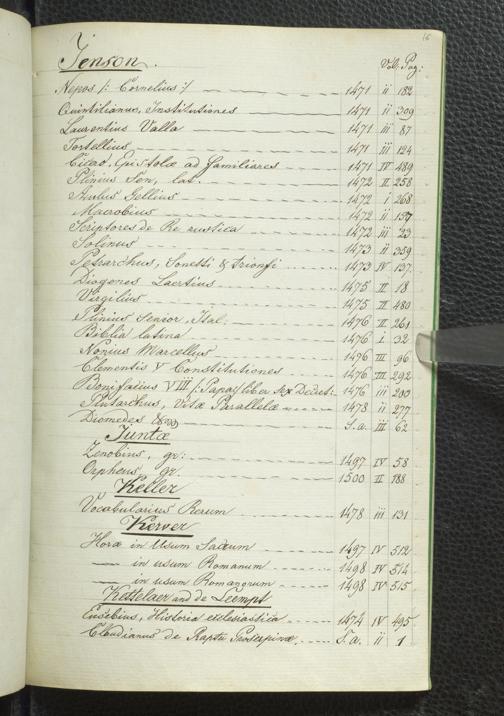 16
Jenson. Vol. Pag:
Nepos /: Cornelius :/ 1471 ii 182
Quintilianus, Institutiones 1471 ii 309
Laurentius Valla 1471 iii 87
Tortellius 1471 iii 124
Cicero, Epistolæ ad familiares 1471 IV 489
Plinius Sen, lat. 1472 II 258
Aulus Gellius 1472 i 268
Macrobius 1472 ii 157
Scriptores de Re rustica 1472 iii 23
Solinus 1473 ii 359
Petrarchus, Sonetti & trionfi 1473 IV 137
Diogenes Laertius 1475 II 18
Virgilius 1475 II 480
Plinius Senior, Ital: 1476 II 261
Biblia latina 1476 I 32
Nonius Marcellus 1476 III 96
Clementis V Constitutiones 1476 III 292
Bonifacius VIII /: Papa :/ liber sex Decret: 1476 iii 200
Plutarchus, Vitæ Parallelæ 1478 ii 277
Diomedes S.a. III 62
Juntæ
Zenobius, gr: 1497 IV 58
Orpheus gr: 1500 II 188
Keller
Vocabularius Rerum 1478 iii 131
Kerver
Horæ in Usum Sacrum 1497 IV 512
— in usum Romanum 1498 IV 514
— in usum Romanorum 1498 IV 515
Kettelaer and de Leempt
Eusebius, Historia ecclesiastica 1474 IV 495
Claudianus de Raptu Proserpinæ S.a. ii 1